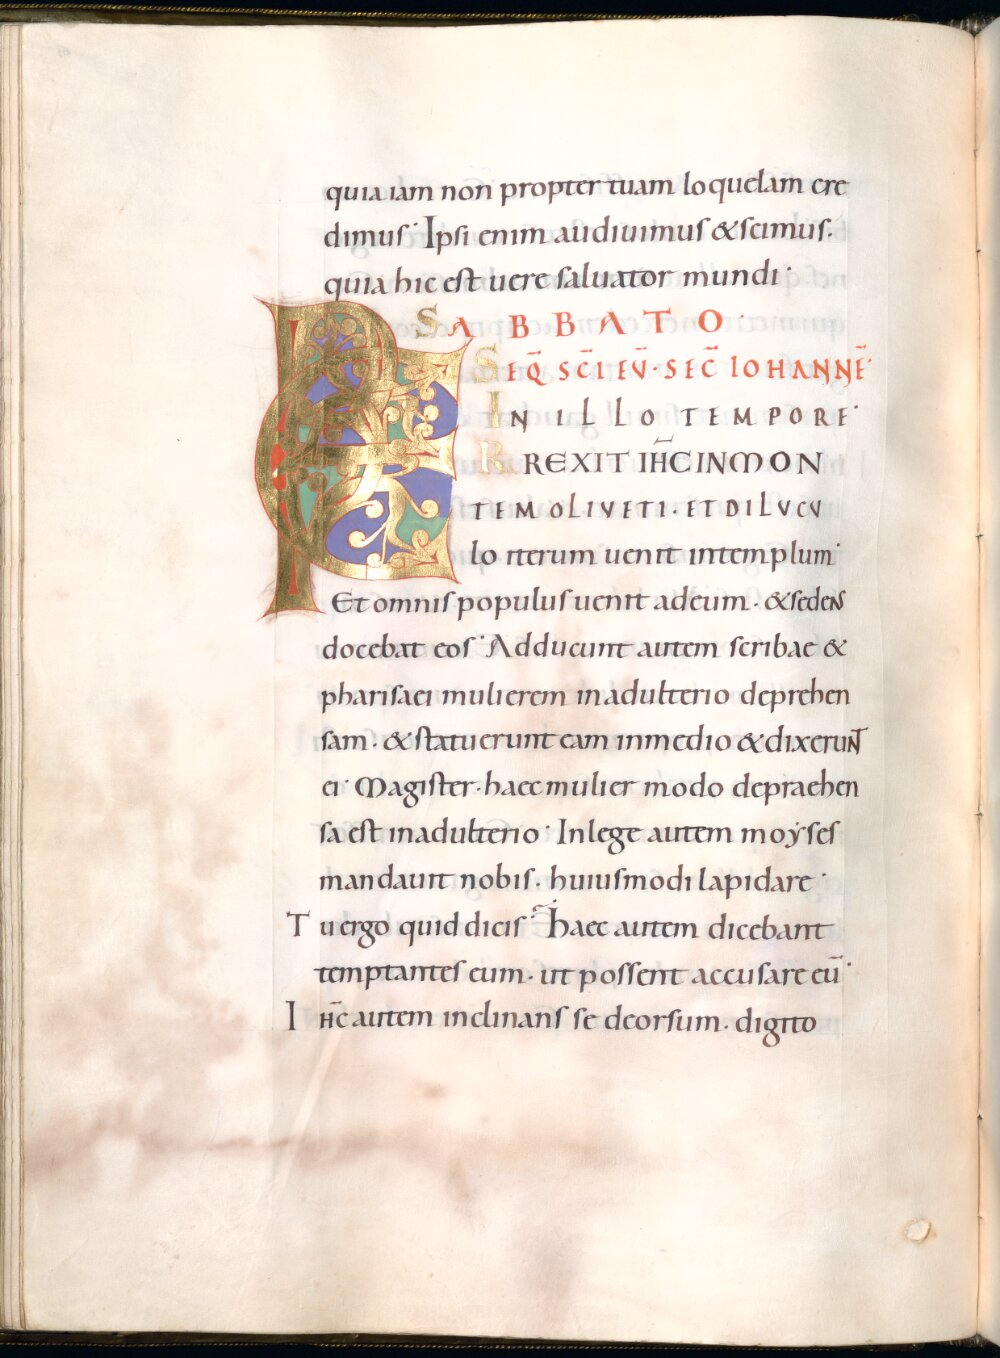 quia iam non propter tuam loquelam cre
dimus· Ipsi enim audiuimus &scimus·
quia hic est uere saluator mundi·
SABBATO·
SEQ̄ SC̄I EV̄· SEC̄ IOHANNĒ·
IN ILLO TEMPORE·
PERREXIT IH̄C IN MON
TEM OLIVETI· ET DILVCV
lo iterum uenit intemplum·
Et omnis populus uenit adeum· &sedens
docebat eos· Adducunt autem scribae &
pharisaei mulierem inadulterio deprehen
sam· &statuerunt eam inmedio &dixerunt
ei· Magister· haec mulier modo depraehen
sa est inadulterio· Inlege autem moẏses
mandauit nobis· huiusmodi lapidare·
Tu ergo quid dicis? Haec autem dicebant
temptantes eum· ut possent accusare eū·
IH̄C autem inclinans se deorsum· digito